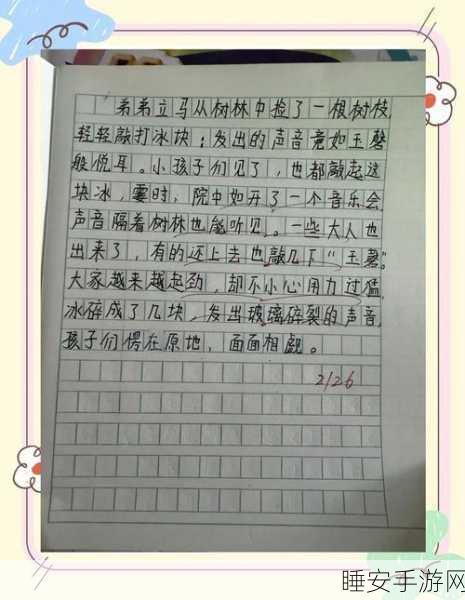 弟弟立马从树林中捡了一根树枝,
轻轻敲打冰块;发出的声音竟如玉磬
般悦耳。小孩子们见了,也都敲起这
块冰,霎时,院中如开了一个音乐会
声音隔着树林也能听见。一些大人也
出来了,有的还上去也敲几下“玉磬”。
大家越来越起劲,却不小心用力过猛,
冰碎成了几块,发出玻璃碎裂的声音,
孩子们愣在原地,面面相觑。
2/26
睡安手游网